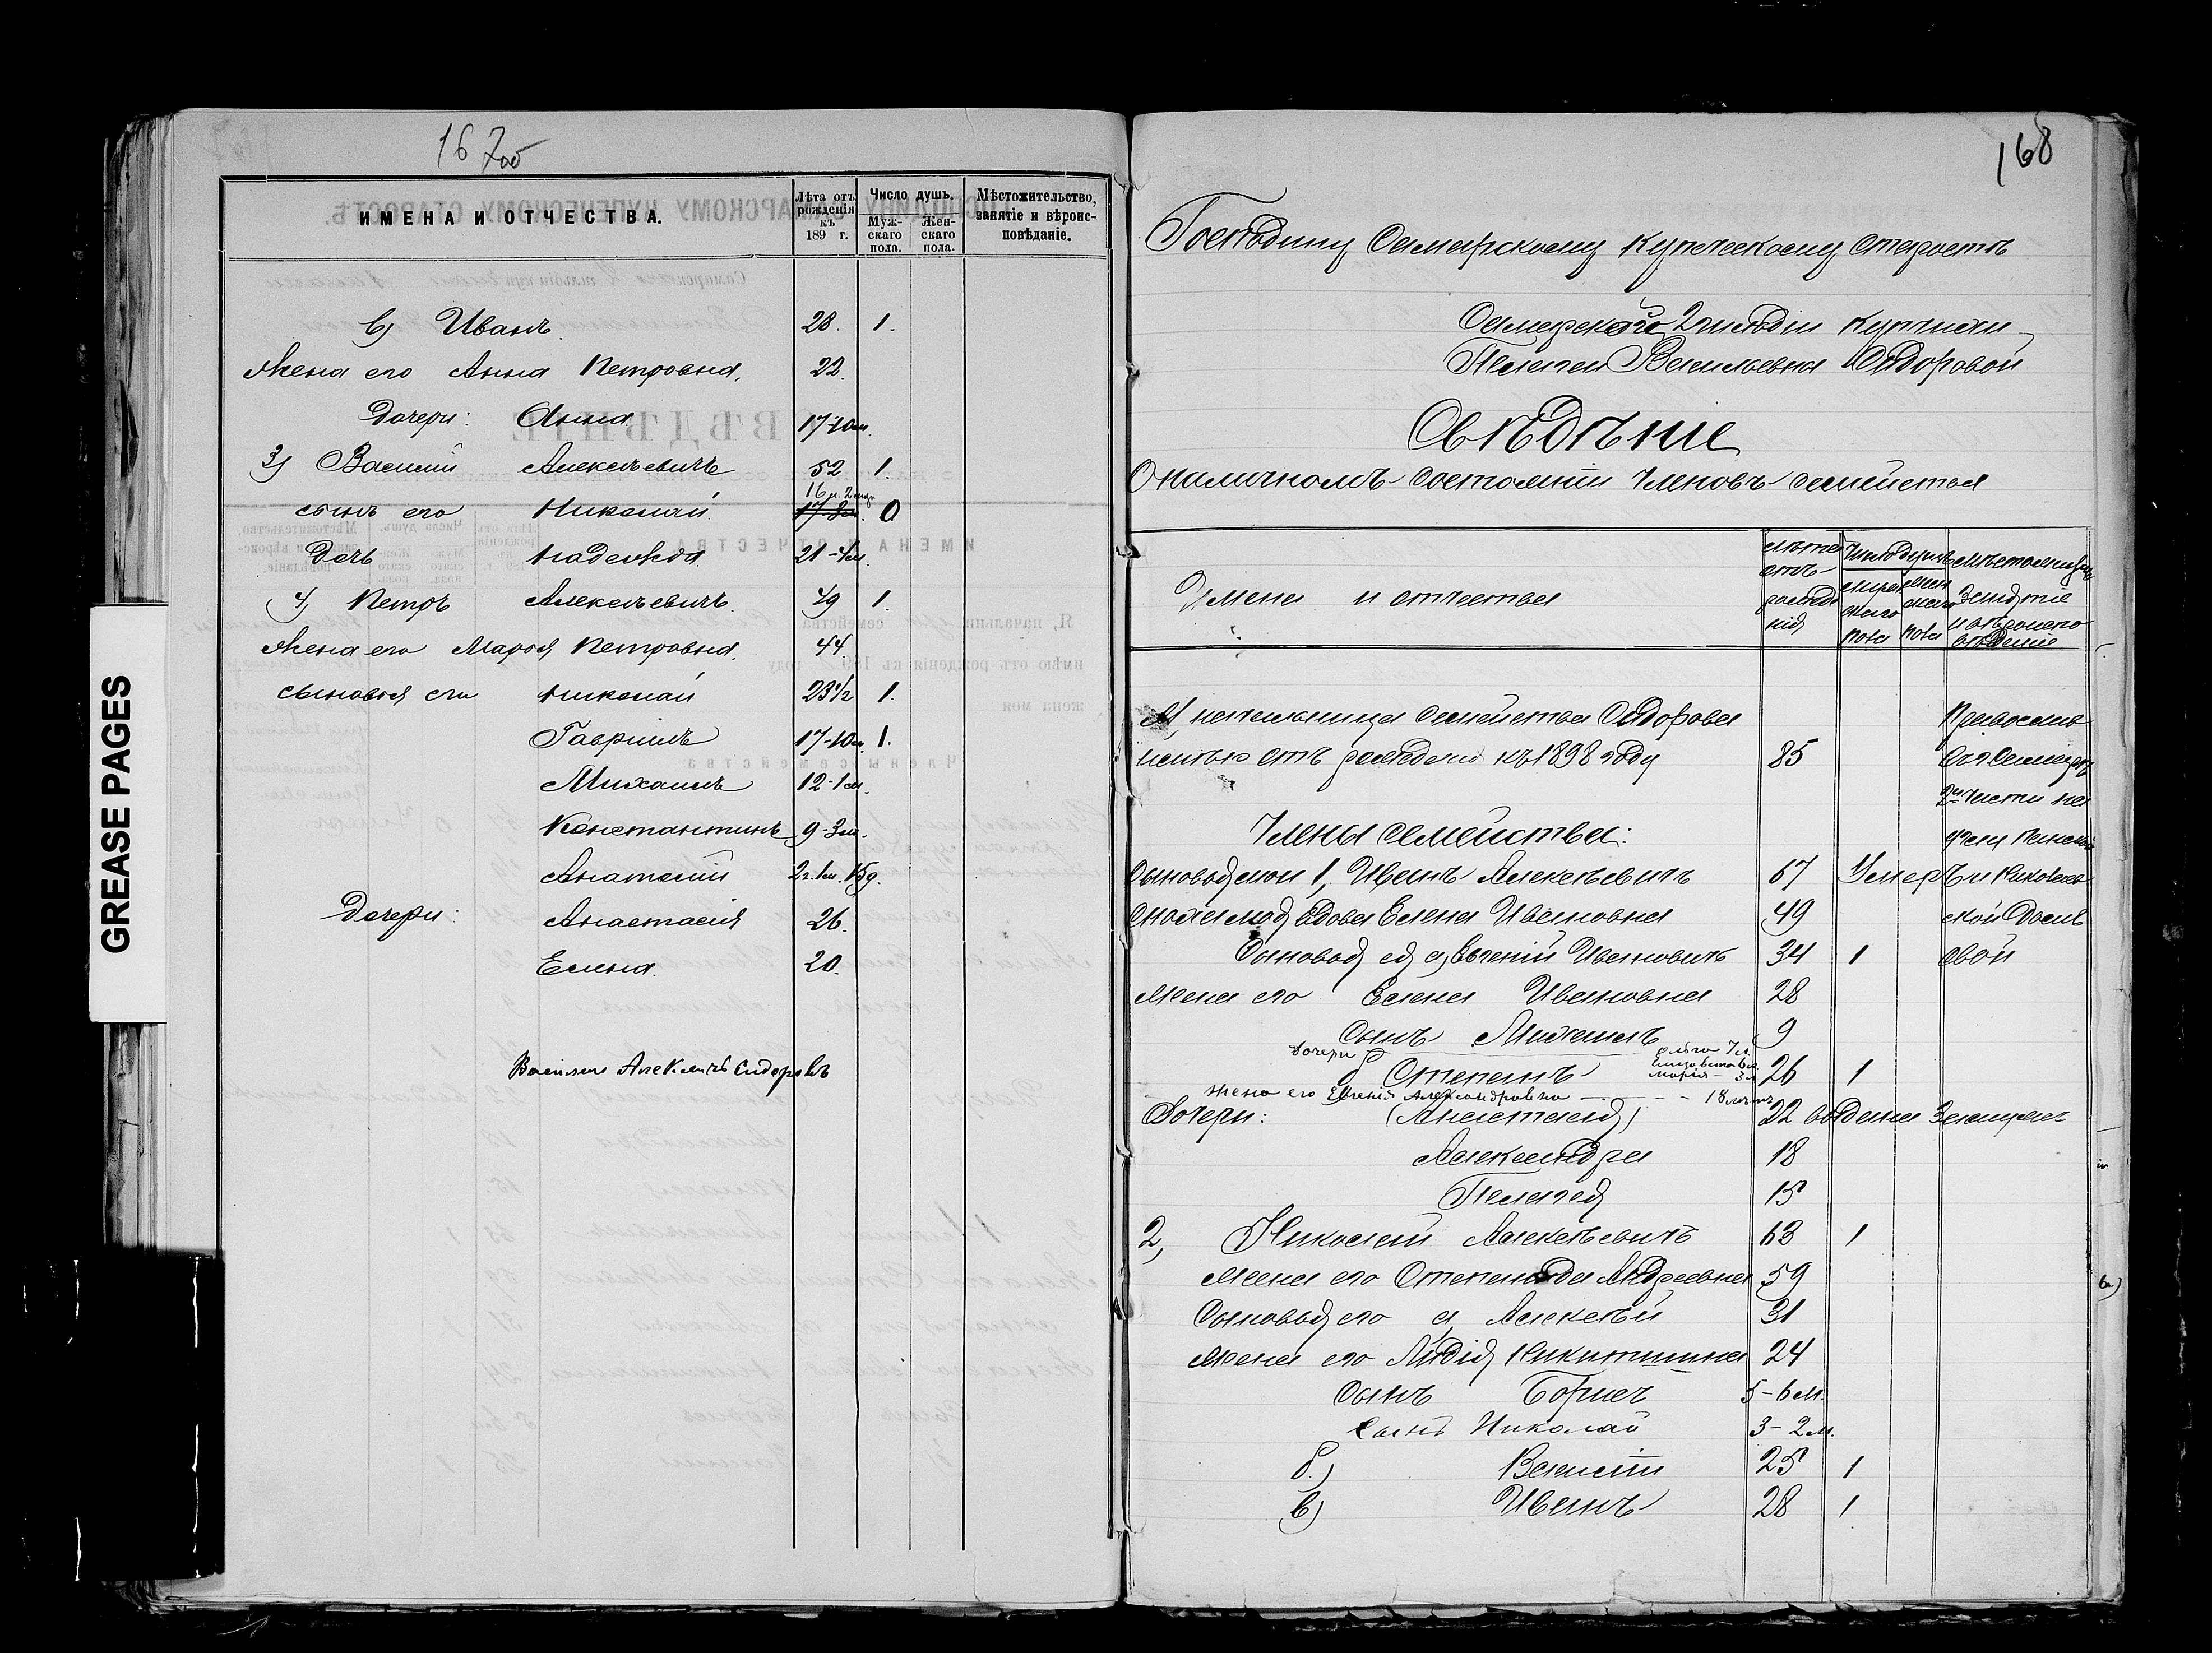 167об
ИМЕНА И ОТЧЕСТВА. Лѣта отъ рожденія къ 189 г. Число душъ. Муж-скаго пола. Жен-скаго пола. Мѣстожительство, занятіе и вѣроис-повѣданіе.
в) Иванъ 28. 1.
Жена его Анна Петровна, 22.
Дочери: Анна 17-10м.
3) Василій Алексѣевичъ 52 1.
16 л. 2 мѣс.
сынъ его Николай 17-3м. 0
Дочь Надежда 21-4м.
4) Петръ Алексѣевичъ. 49 1.
Жена его Марья Петровна. 44.
сыновья его Николай 23 1/2 1.
Гавріилъ 17-10м. 1.
Михаилъ 12-1м.
Константинъ 9-3м.
Анатолій 2г. 1м. 15д.
Дочери: Анастасія 26.
Елена. 20.
Василии Алексѣичъ Сидоровъ
GREASE PAGES
168
Господину Самарскому Купеческому Старостѣ
Самарской 2 гильдіи купчихи
Пелагеи Васильевна Сидоровой
Свѣдѣніе
О наличномъ состояніи членовъ семейства
Имена и отчества лѣта отъ рожденія Число душъ мужскаго пола женскаго пола мѣстожитель занятіе и вѣроиспо вѣданіе
Я, начальница семейства Сидорова Православ
имѣю отъ рожденія къ 1898 году 85
2й части на
Члены семейства:
Сыновья мои 1, Иванъ Алексѣевичъ 67 Умеръ
Сноха моя вдова Елена Ивановна 49 ской Домъ
Сыновья ея а, Евгеній Ивановичъ 34 1 свой
Жена его Елена Ивановна 28
Сынъ Михаилъ 9
дочери Ольга 7 л.
Елизавета 6 л.
Марія — 3 л.
б Степанъ 26 1
жена его Евгенія Александровна — 18 лѣтъ
Дочери: (Анастасія) 22 выдана Замужъ
Александра 18
Пелагея 15
2, Николай Алексѣевичъ 63 1
Жена его Степанида Андреевна 59
Сыновья его а, Алексѣй 31
Жена его Лидія Никитишна 24
Сынъ Борисъ 5-6м.
Сынъ Николай 3-2м.
б.) Василій 25 1
в) Иванъ 28 1